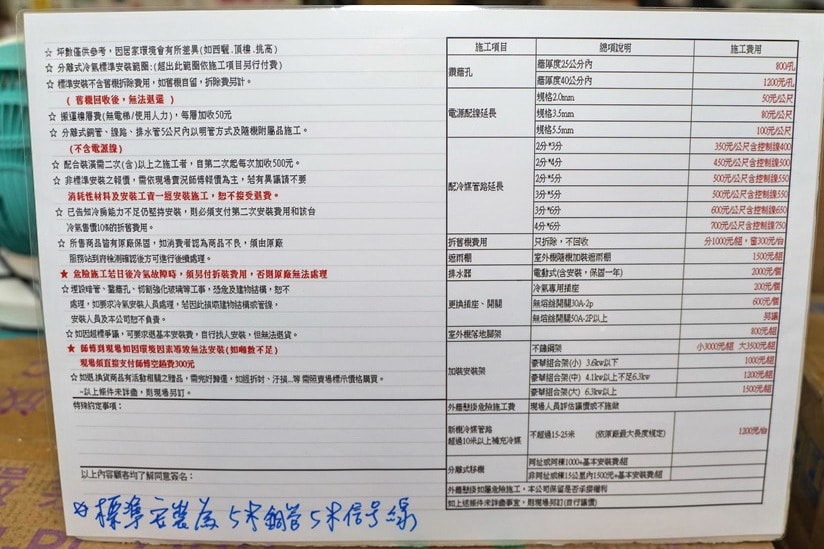 ☆ 坪數僅供參考，因居家環境會有所差異(如西曬.頂樓.挑高)
☆ 分離式冷氣標準安裝範圍:(超出此範圍依施工項目另行付費)
☆ 標準安裝不含舊機拆除費用，如舊機自留，拆除費另計。
( 舊機回收後，無法退還 )
☆ 搬運樓層費(無電梯/使用人力)，每層加收50元
☆ 分離式銅管、線路、排水管5公尺內以明管方式及隨機附屬品施工。
(不含電源線)
☆ 配合裝潢需二次(含)以上之施工者，自第二次起每次加收500元。
☆ 非標準安裝之報價，需依現場實況師傅報價為主，若有異議請不要
消耗性材料及安裝工資一經安裝施工，恕不接受退費。
☆ 已告知冷房能力不足仍堅持安裝，則必須支付第二次安裝費用和該台
冷氣售價10%的折舊費用。
☆ 所售商品皆有原廠保固，如消費者認為商品不良，須由原廠
服務站到府檢測確認後方可進行後續處理。
★ 危險施工若日後冷氣故障時，須另付拆裝費用，否則原廠無法處理
☆ 埋設暗管、鑿牆孔、切割強化玻璃等工事，恐危及建物結構，恕不
處理，如要求冷氣安裝人員處理，若因此損壞建物結構或管線，
安裝人員及本公司恕不負責。
☆ 如因超標爭議，可要求退基本安裝費，自行找人安裝，但無法退貨。
★ 師傅到現場如因環境因素導致無法安裝(如噸數不足)
現場須直接支付師傅空趟費300元
☆ 如退.換貨商品有活動相關之贈品，需完好歸僅，如經拆封、汙損...等 需照賣場標示價格購買。
~以上條件未詳盡，則現場另訂。
特殊約定事項：
以上內容顧客均了解同意簽名：
☆標準安裝為 5米銅管5米信号線
施工項目 總項說明 施工費用
鑽牆孔 牆厚度25公分內 800/孔
牆厚度40公分內 1200元/孔
電源配線延長 規格2.0mm 50元/公尺
規格3.5mm 80元/公尺
規格5.5mm 100元/公尺
配冷媒管路延長 2分*3分 350元/公尺含控制線400
2分*4分 450元/公尺含控制線500
2分*5分 500元/公尺含控制線550
3分*5分 500元/公尺含控制線550
3分*6分 600元/公尺含控制線650
4分*6分 700元/公尺含控制線750
拆舊機費用 只拆除，不回收 分1000元/組，窗300元/台
遮雨棚 室外機隨機加裝遮雨棚 1500元/組
排水器 電動式(含安裝，保固一年) 2000元/個
更換插座、開關 冷氣專用插座 200元/個
無熔絲開關30A-2p 600元/個
無熔絲開關50A-2P以上 另議
室外機落地腳架 800元/組
加裝安裝架 不鏽鋼架 小3000元/組 大3500元/組
豪華組合架(小) 3.6kw以下 1000元/組
豪華組合架(中) 4.1kw以上不足6.3kw 1200元/組
豪華組合架(大) 6.3kw以上 1500元/組
外牆懸掛危險施工費 現場人員評估議價或不施做
新機冷媒管路
超過10米以上補充冷媒 不超過15-25米 (依原廠最大長度規定) 1200元/台
分離式移機 同址或同棟1000+基本安裝費/組
非同址或棟15公里內1500元+基本安裝費/組
外牆懸掛如屬危險施工，本公司保留是否承接權利
如上述條件未詳盡事宜，則現場另訂(自行議價)